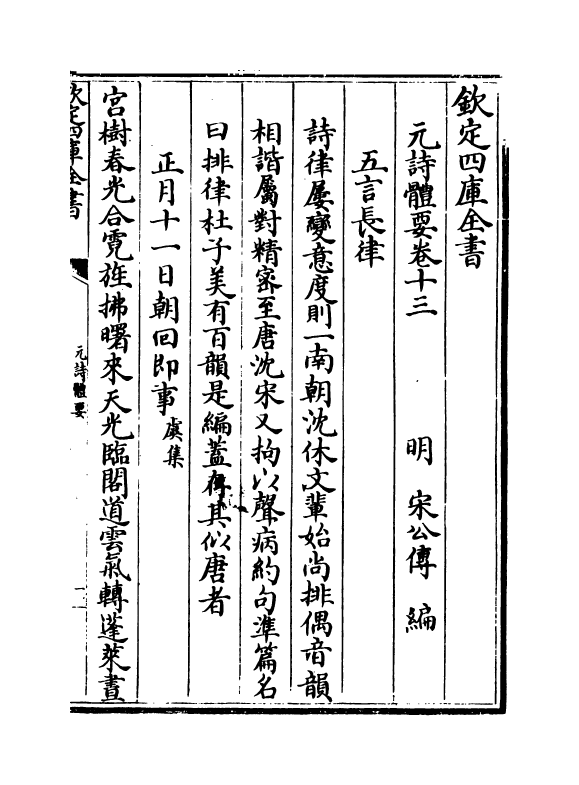 欽定四庫全書
元詩體要卷十三　明　宋公傳　編
五言長律
詩律屢變意度則一南朝沈休文輩始尚排偶音韻
相諧屬對精密至唐沈宋又拘以聲病約句準篇名
曰排律杜子美有百韻是編蓋存其似唐者
正月十一日朝回即事虞集
宮樹春光合霓旌拂曙來天光臨閣道雲氣轉蓬萊晝
欽定四庫全書
元詩體要
一